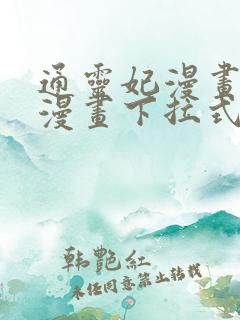 通靈妃漫畫
漫畫下拉式
韩艷紅
未经同意禁止转载